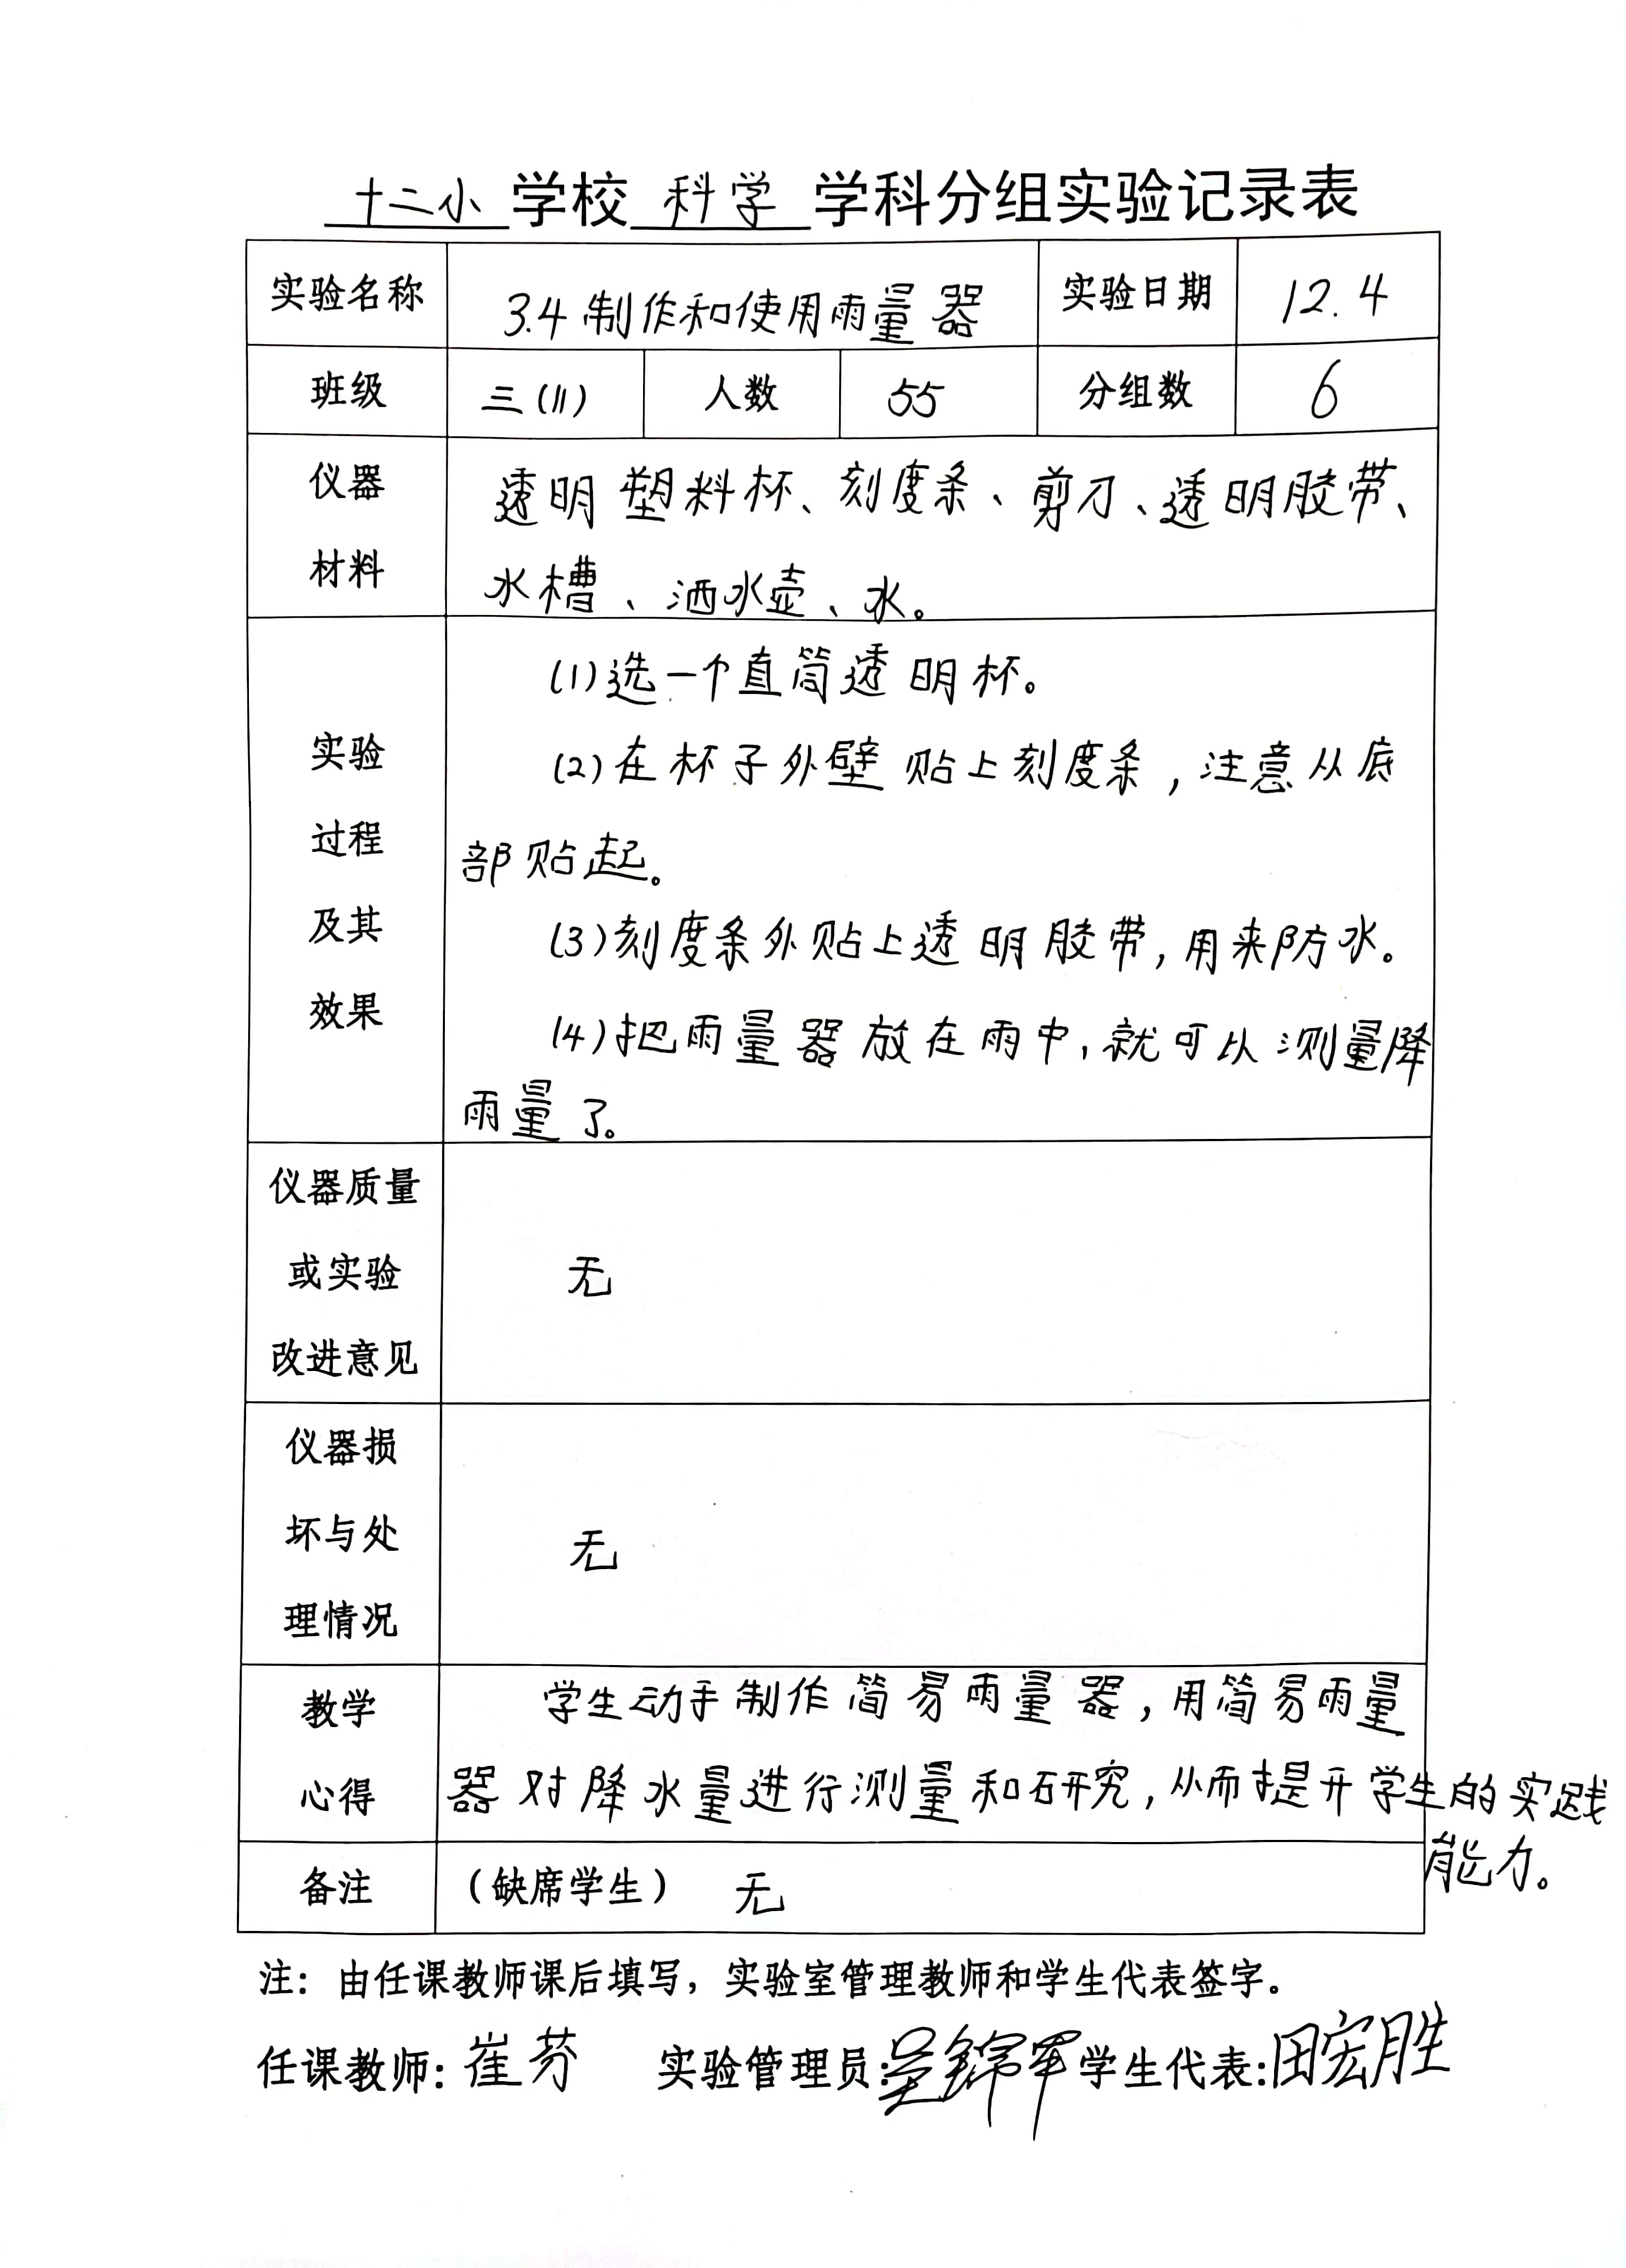 十二小学校科学学科分组实验记录表
实验名称 3.4制作和使用雨量器 实验日期 12.4
班级 三(11) 人数 55 分组数 6
仪器
材料
透明塑料杯、刻度条、剪刀、透明胶带、
水槽、洒水壶、水。
实验
过程
及其
效果
(1)选一个直筒透明杯。
(2)在杯子外壁贴上刻度条，注意从底
部贴起。
(3)刻度条外贴上透明胶带，用来防水。
(4)把雨量器放在雨中，就可以测量降
雨量了。
仪器质量
或实验
改进意见
无
仪器损
坏与处
理情况
无
教学
心得
学生动手制作简易雨量器，用简易雨量
器对降水量进行测量和研究，从而提升学生的实践
能力。
备注 （缺席学生） 无
注：由任课教师课后填写，实验室管理教师和学生代表签字。
任课教师：崔芬 实验管理员：吴锦军 学生代表：田宏胜